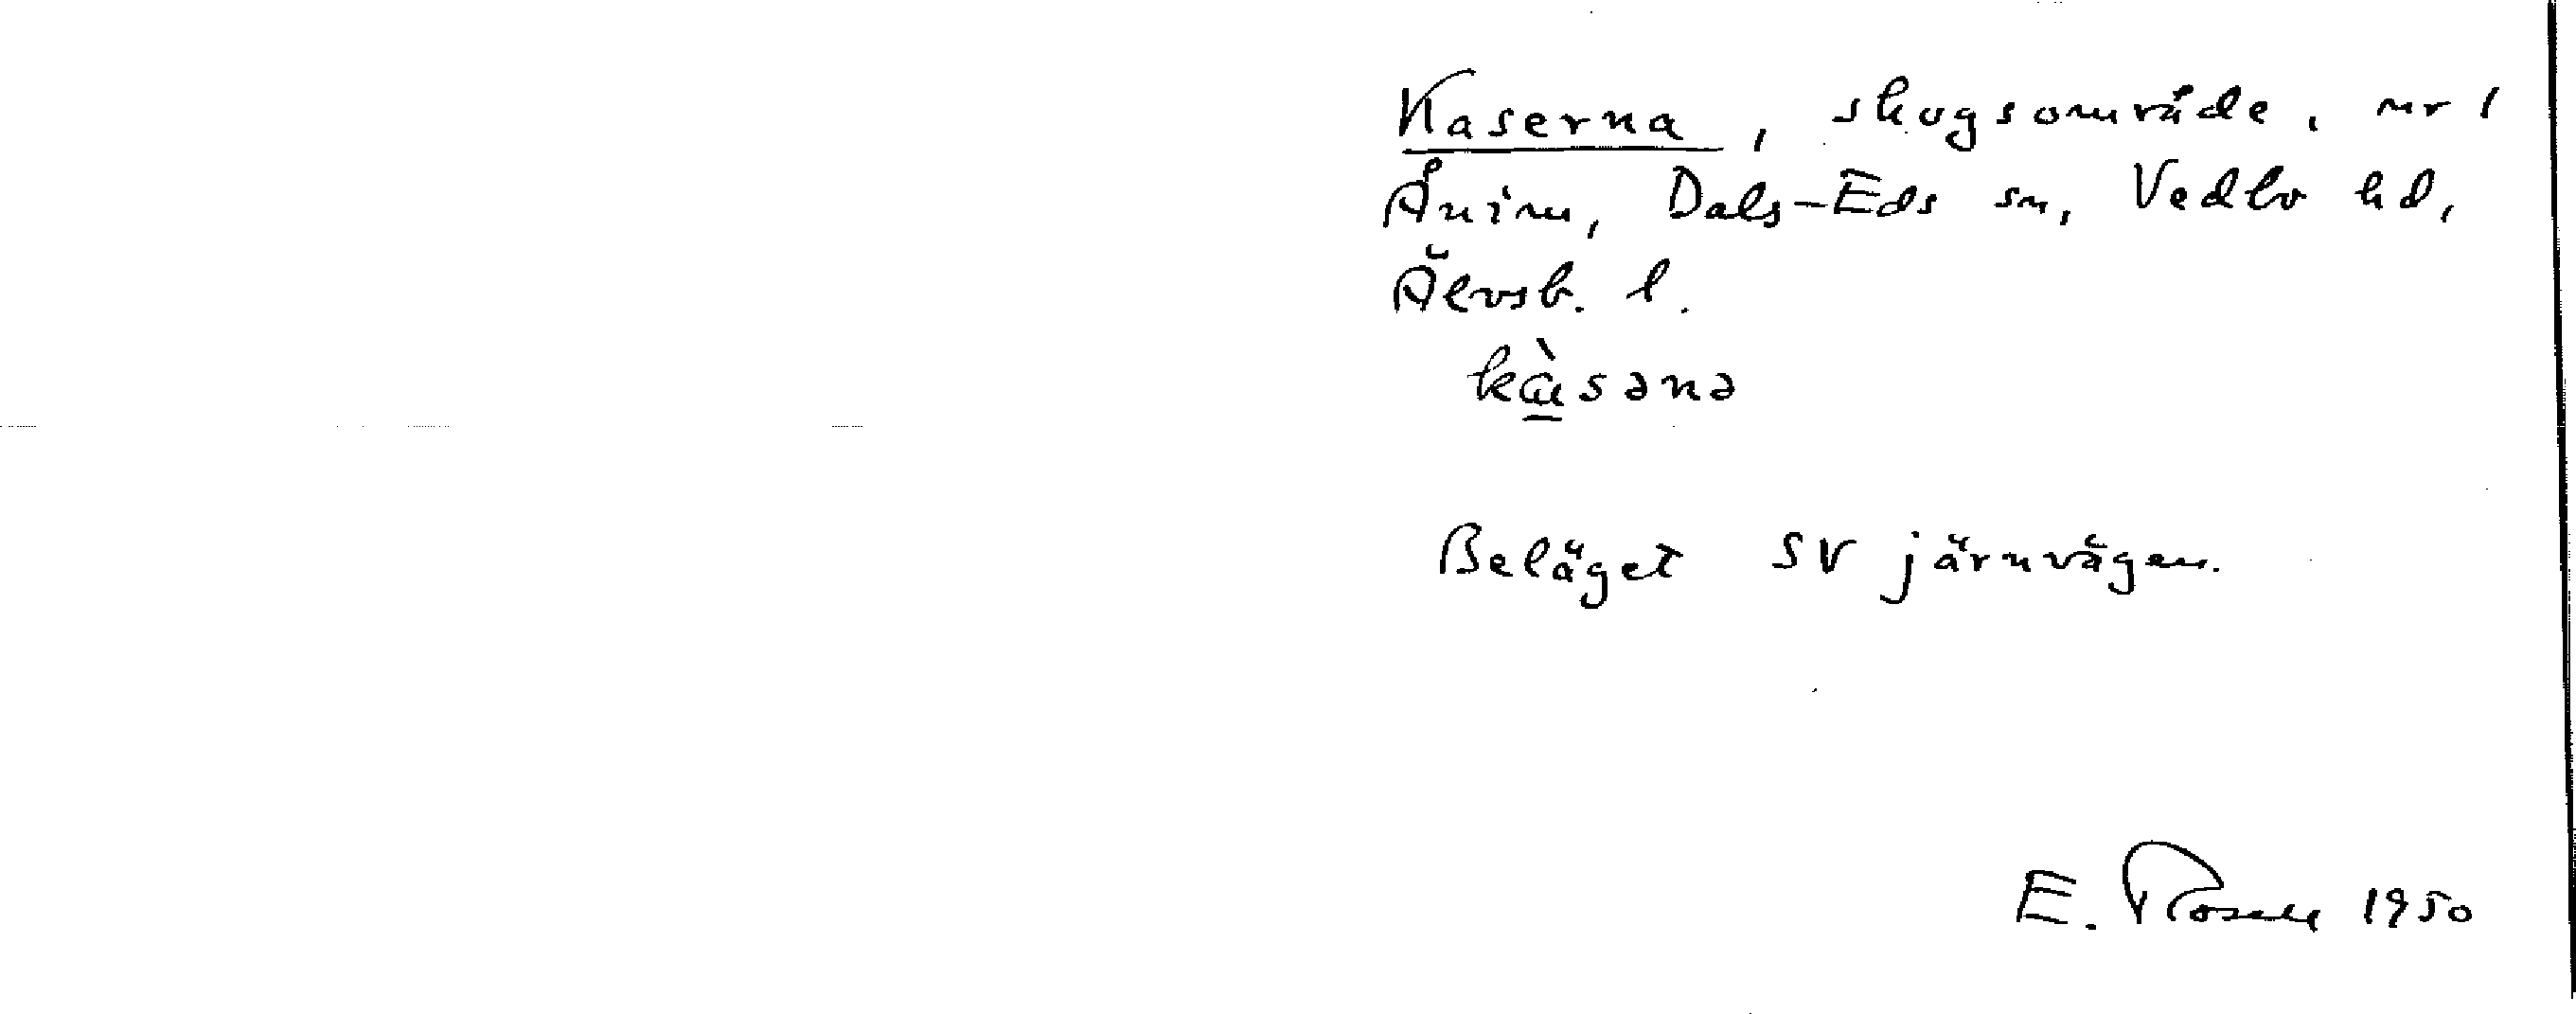 Kaserna, skogsområde, nr 1
Ånim, Dals-Eds sn, Vedbo hd,
Älvsb. l.
kàsənə
Beläget SV järnvägen.
E. Rosell 1950